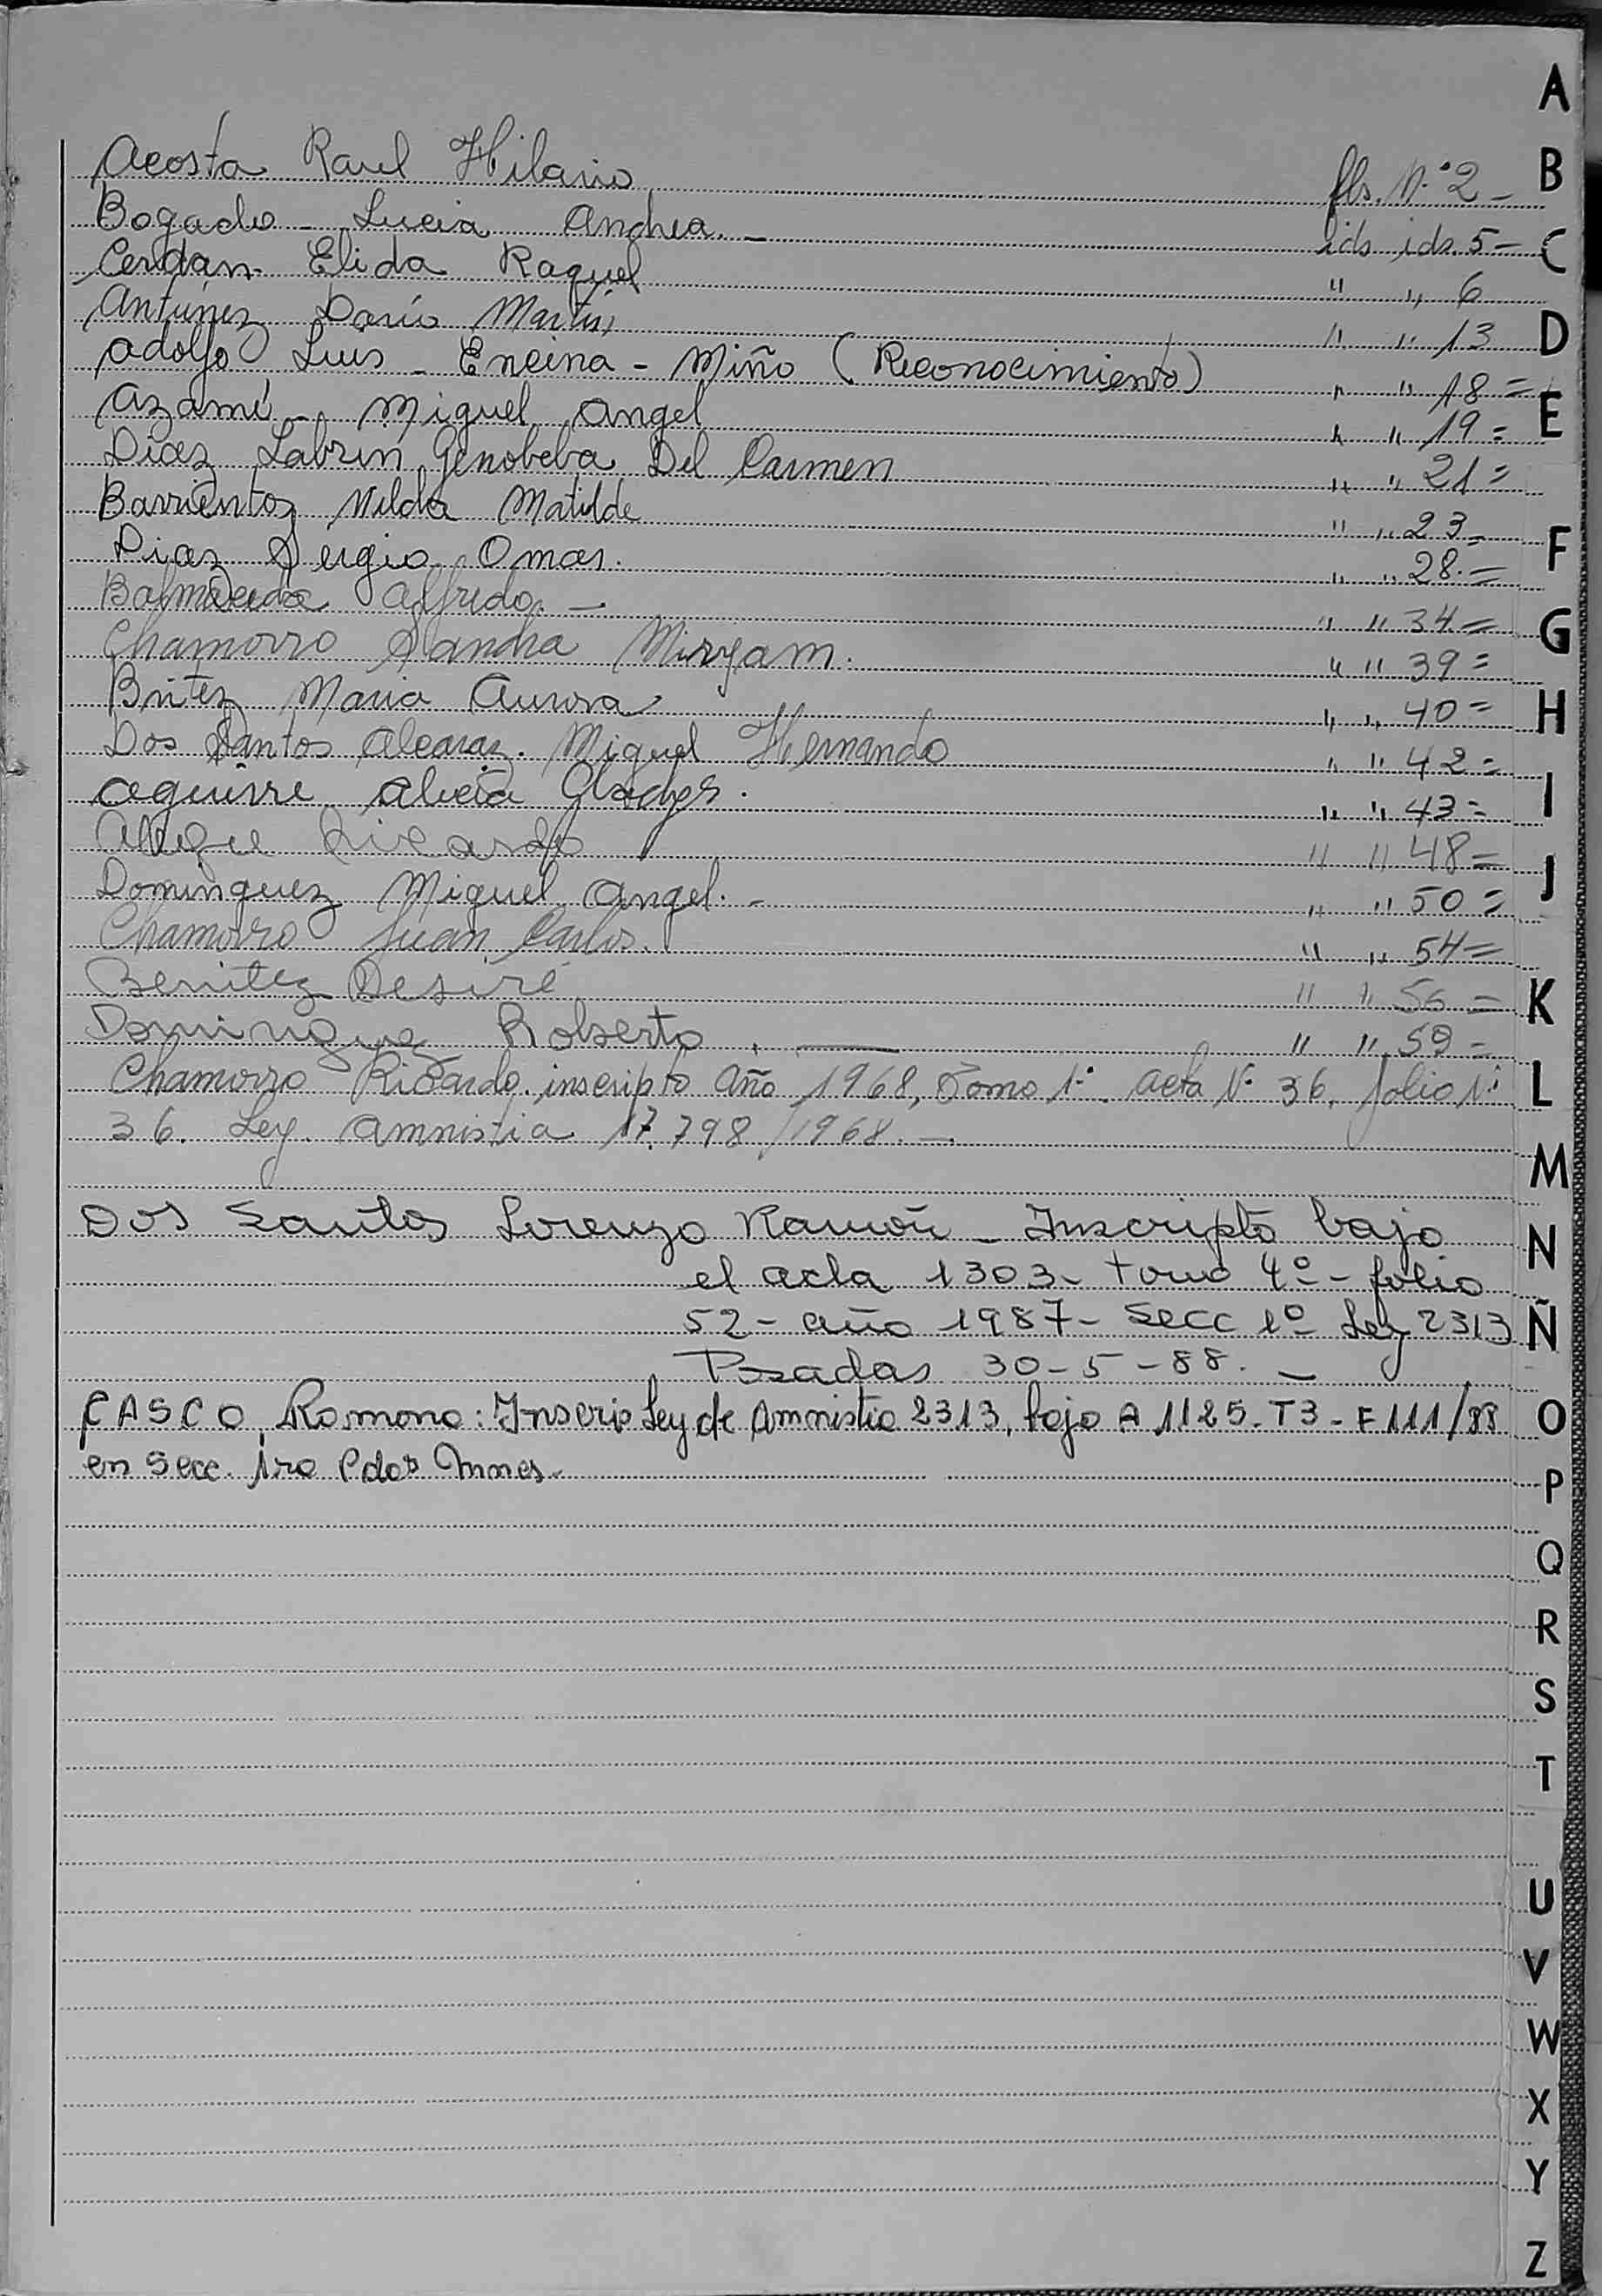 Acosta Raul Hilario fls. N.º 2 -
Bogado - Lucia Andrea. - ids ids. 5 -
Cerdán - Elida Raquel " " 6
Antúnez Darío Martín " " 13
Adolfo Luis - Encina - Miño (Reconocimiento) " " 18 =
Azamé - Miguel Angel " " 19 =
Diaz Labrin Genobeba Del Carmen " " 21 =
Barrientos Nilda Matilde " " 23 =
Diaz Sergio Omar. " " 28. =
Balmaceda Alfredo. - " " 34. =
Chamorro Sandra Miryam. " " 39 =
Britez Maria Aurora " " 40 =
Dos Santos Alcaraz. Miguel Hernando " " 42 =
Aguirre Alicia Gladys. " " 43 =
Ricardo " " 48 =
Dominguez Miguel Angel. - " " 50 =
Chamorro Juan Carlos. " " 54 =
Benitez Desiré " " 56 =
Dominguez Roberto . — " " 59 -
Chamorro Ricardo. inscripto Año 1968, Tomo 1º. Acta Nº 36. folio Nº
36. Ley. Amnistia 17.798/1968. -
Dos Santos Lorenzo Ramón - Inscripto bajo
el acta 1303 - tomo 4º - folio
52 - año 1987 - Secc 1º Ley 2313
Posadas 30-5-88. -
CASCO, Ramona: Inscrip Ley de Amnistia 2313, bajo A 1125. T3 - F 111/88
en Secc. 1ra Pdas Mnes.
A
B
C
D
E
F
G
H
I
J
K
L
M
N
Ñ
O
P
Q
R
S
T
U
V
W
X
Y
Z